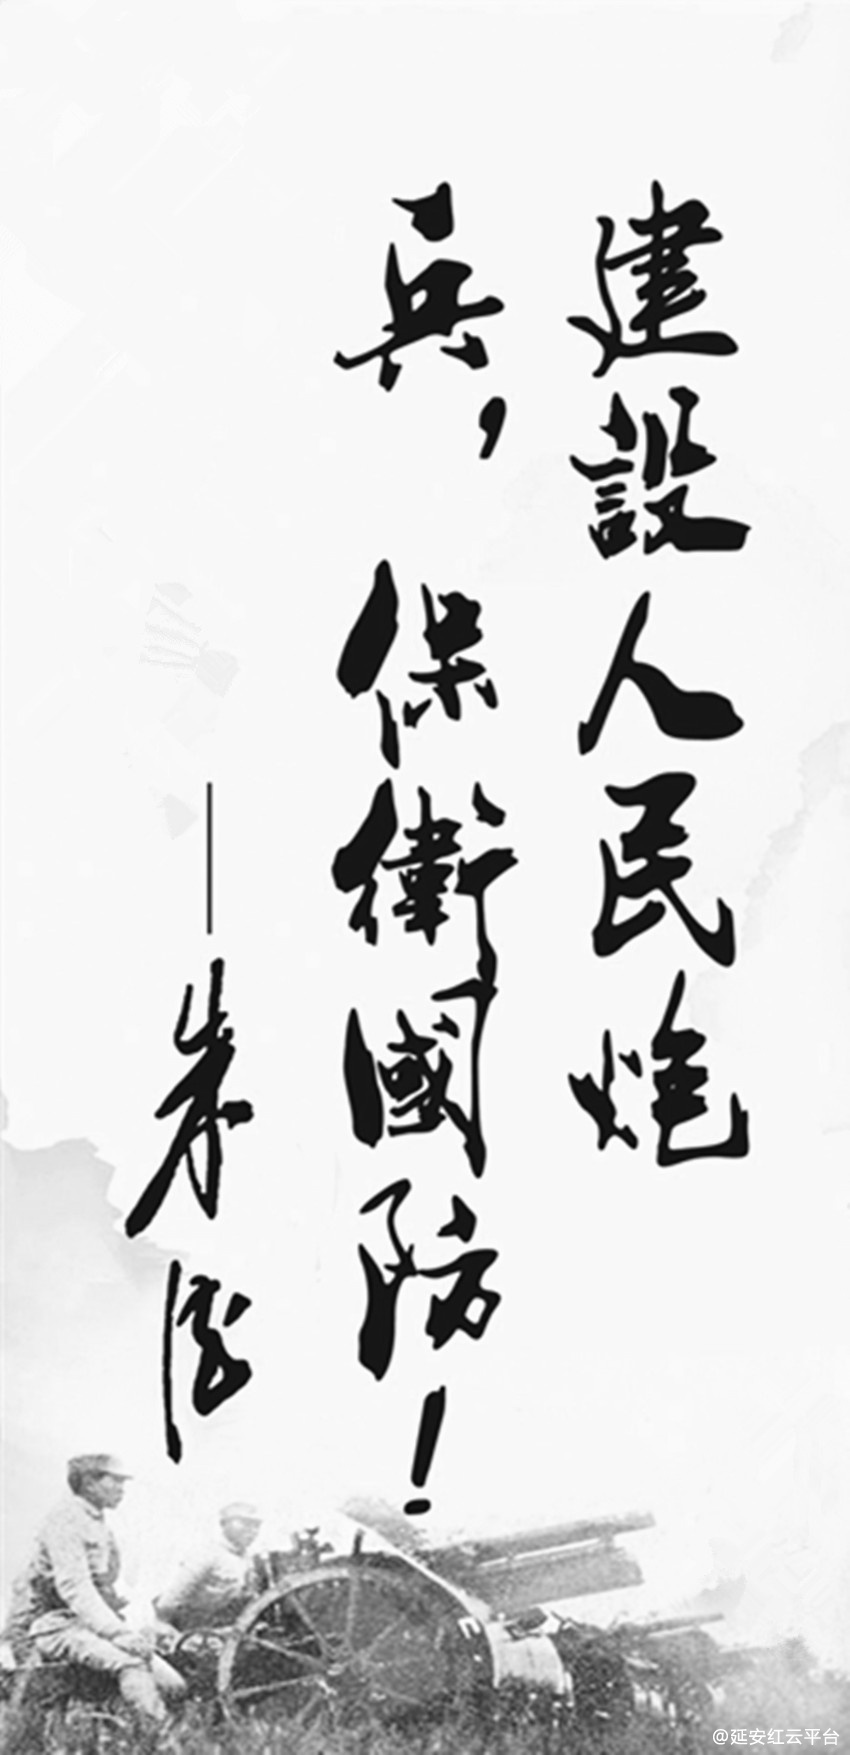 建設人民炮
兵，保衛國防！
——朱德
@延安红云平台